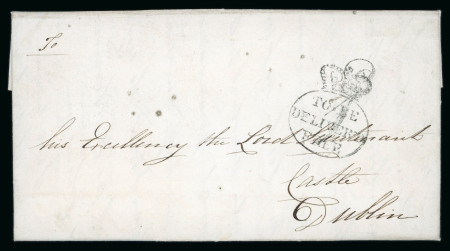 To
TO BE
DELIVERED
FREE
his Excellency the Lord Lieutenant
Castle
Dublin